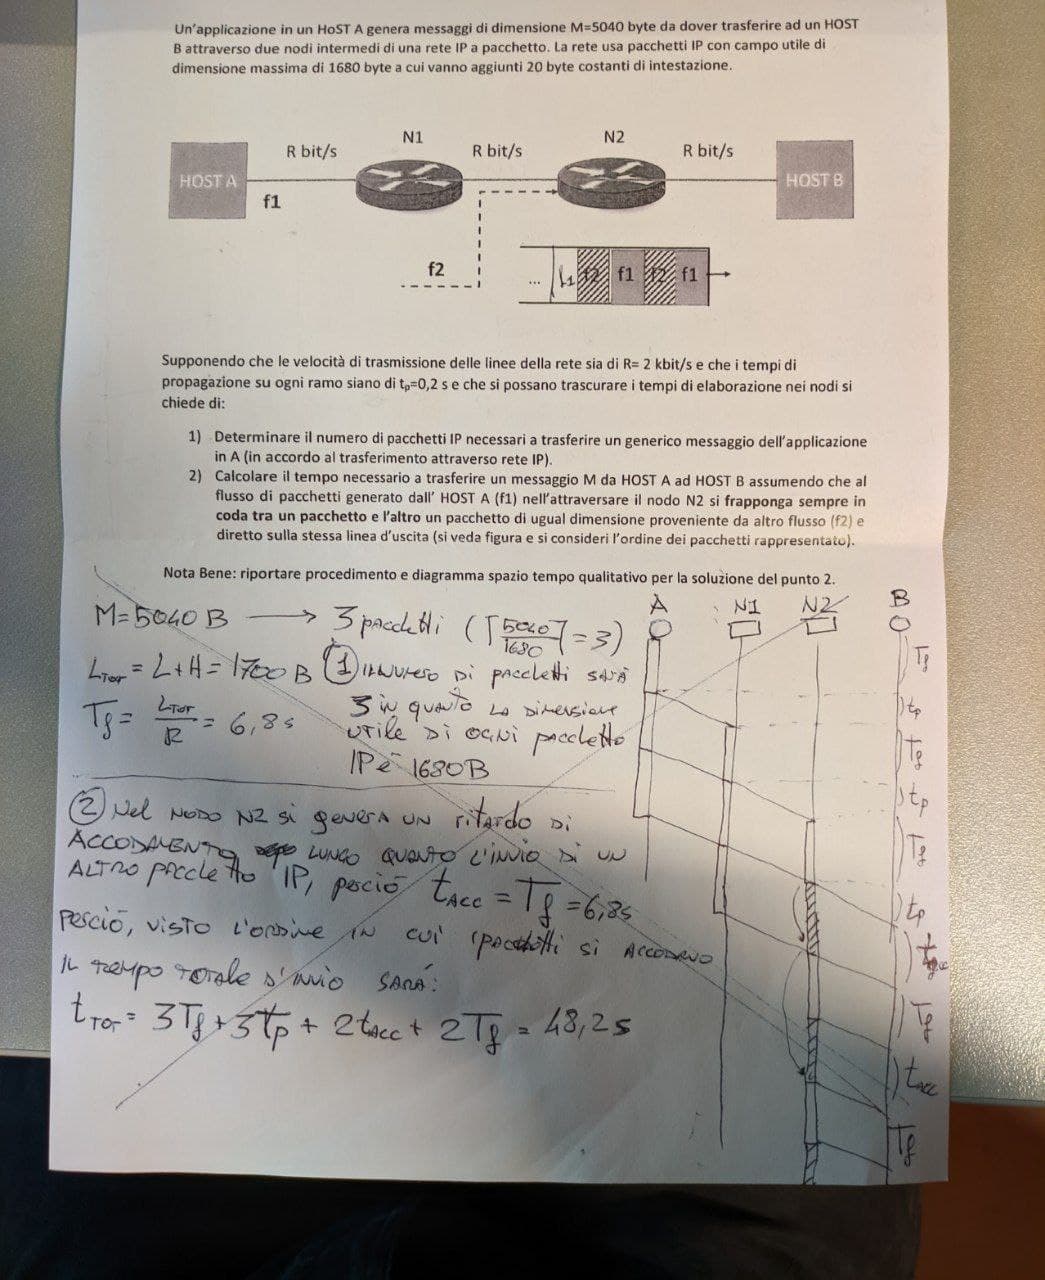 Un'applicazione in un HoST A genera messaggi di dimensione M=5040 byte da dover trasferire ad un HOST
B attraverso due nodi intermedi di una rete IP a pacchetto. La rete usa pacchetti IP con campo utile di
dimensione massima di 1680 byte a cui vanno aggiunti 20 byte costanti di intestazione.
N1
N2
R bit/s
R bit/s
R bit/s
HOST A
HOST B
f1
f2
... f1 f2 f1 f2 f1
Supponendo che le velocità di trasmissione delle linee della rete sia di R= 2 kbit/s e che i tempi di
propagazione su ogni ramo siano di tp=0,2 s e che si possano trascurare i tempi di elaborazione nei nodi si
chiede di:
1) Determinare il numero di pacchetti IP necessari a trasferire un generico messaggio dell'applicazione
in A (in accordo al trasferimento attraverso rete IP).
2) Calcolare il tempo necessario a trasferire un messaggio M da HOST A ad HOST B assumendo che al
flusso di pacchetti generato dall' HOST A (f1) nell'attraversare il nodo N2 si frapponga sempre in
coda tra un pacchetto e l'altro un pacchetto di ugual dimensione proveniente da altro flusso (f2) e
diretto sulla stessa linea d'uscita (si veda figura e si consideri l'ordine dei pacchetti rappresentato).
Nota Bene: riportare procedimento e diagramma spazio tempo qualitativo per la soluzione del punto 2.
A N1 N2 B
M=5040 B → 3 pacchetti (⌈5040/1680⌉=3)
LTOT = L+H = 1700 B ① IL NUMERO DI pacchetti SARÀ
Tf = LTOT/R = 6,8 s 3 in quanto LA DIMENSIONE
UTILE DI OGNI pacchetto
IP è 1680B
② Nel NODO N2 si genera UN ritardo DI
ACCODAMENTO LUNGO QUANTO L'INVIO DI UN
ALTRO pacchetto IP, perciò tACC = Tf = 6,8s
Perciò, visto l'ordine IN cui i pacchetti si ACCODANO
IL TEMPO TOTALE D'INVIO SARÀ:
tTOT = 3Tf + 3tp + 2tACC + 2Tf = 48,2 s
Tf
tp
Tf
tp
Tf
tp
tACC
Tf
tACC
Tf